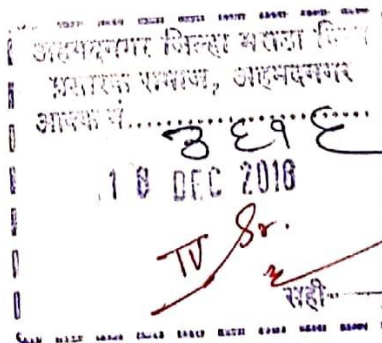 अहमदनगर जिल्हा मराठा विद्या
प्रसारक समाज, अहमदनगर
आवक नं. ३६१६
16 DEC 2016
IV Sr.
सही